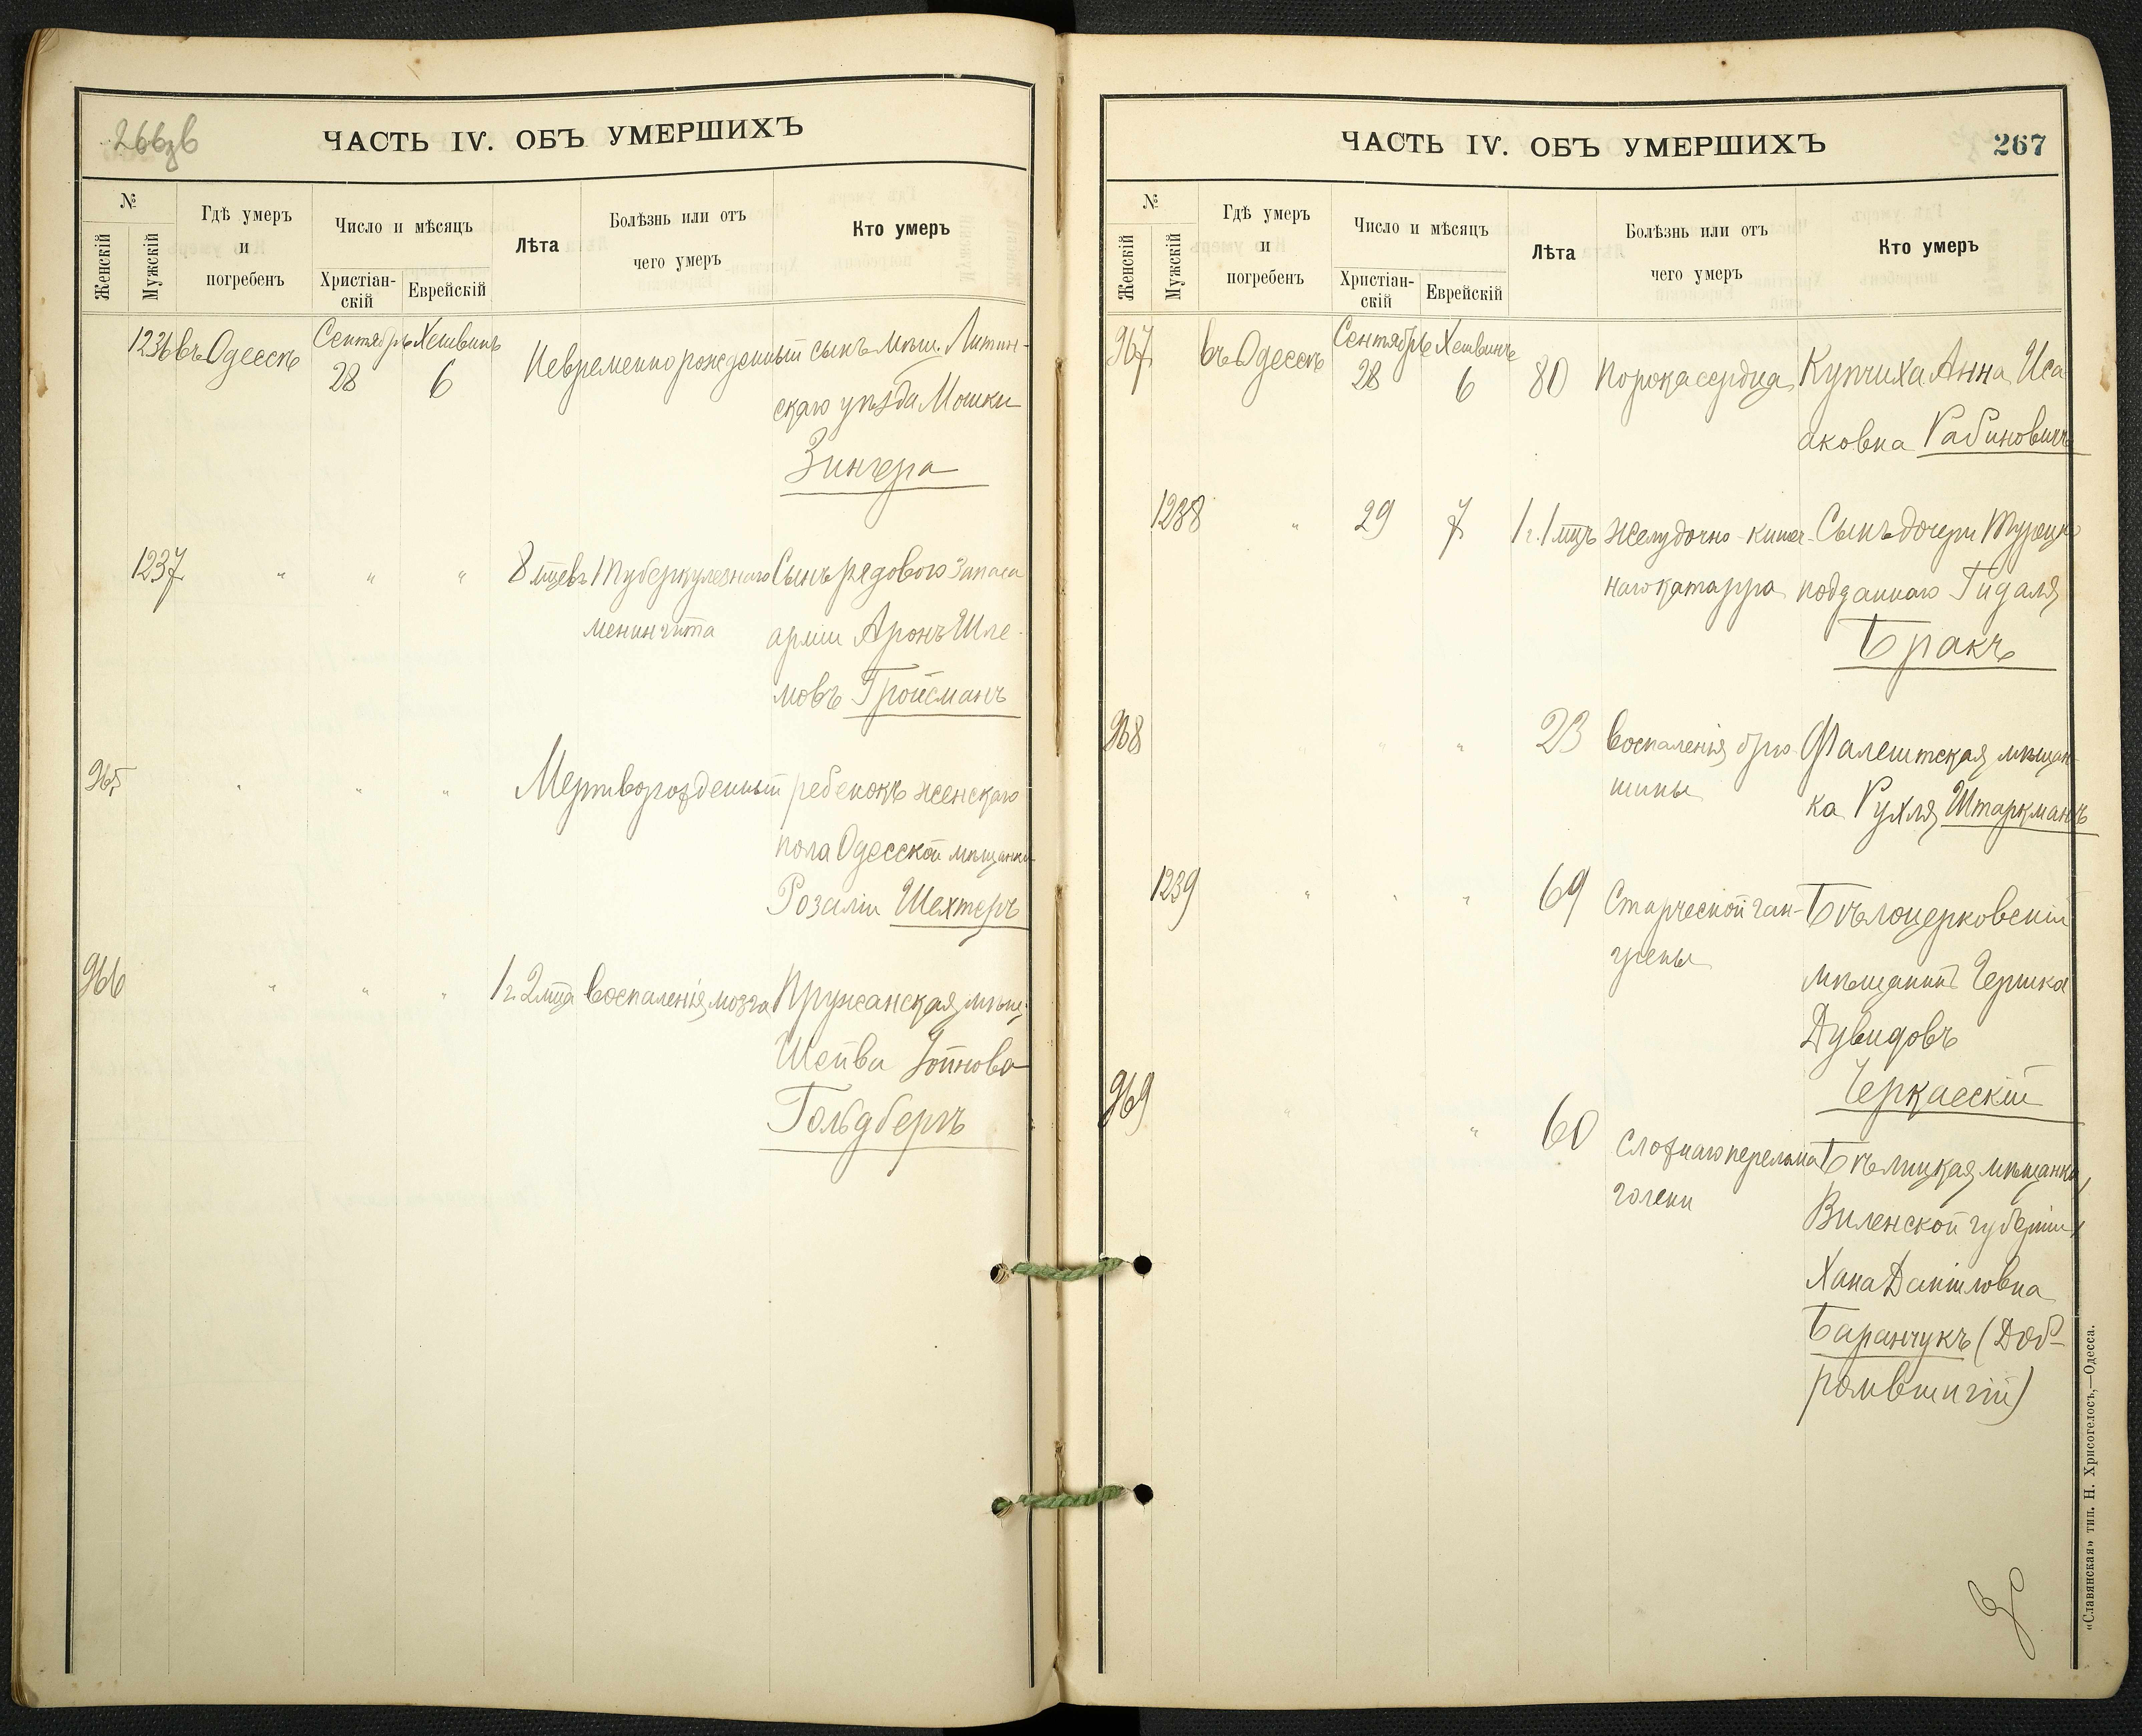 266зв
ЧАСТЬ IV. ОБЪ УМЕРШИХЪ
№
Женскій
Мужскій
Гдѣ умеръ
и
погребенъ
Число и мѣсяцъ
Христіан-
скій
Еврейскій
Лѣта
Болѣзнь или отъ
чего умеръ
Кто умеръ
1236 въ Одессѣ Сентябрь Хешвинъ Невременно рожденный сынъ мѣщ. Литин-
28 6
скаго уѣзда Мошки
Зингера
1237 " " " 8 мцевъ Туберкулезнаго Сынъ рядового запаса
менингита арміи Аронъ Шле-
мовъ Гройсманъ
965 " " " Мертворожденный ребенокъ женскаго
пола Одесской мѣщанки
Розаліи Шехтеръ
966 " " " 1 г. 2 мца Воспаленія мозга Пружанская мѣщ.
Шейва
Гольдбергъ
ЧАСТЬ IV. ОБЪ УМЕРШИХЪ
267
№
Женскій
Мужскій
Гдѣ умеръ
и
погребенъ
Число и мѣсяцъ
Христіан-
скій
Еврейскій
Лѣта
Болѣзнь или отъ
чего умеръ
Кто умеръ
967 въ Одессѣ Сентябрь Хешвинъ
28 6 80 Порока сердца Купчиха Анна Иса
аковна Рабиновичъ
1238 " 29 7 1 г. 1 мцъ Желудочно-кишеч- Сынъ дочери Турецко
наго катарра подданнаго Гидаля
Бракъ
968 " " " 23 Воспаленія брю- Фалештская мѣщан-
шины ка Рухля Штаркманъ
1239 " " " 69 Старческой ган- Бѣлоцерковскій
грены мѣщанинъ Гершка
Дувидовъ
Черкасскій
969 " " 60 Сложнаго перелома Бѣлицкая мѣщанка,
голени Виленской губерніи,
Хана Даніиловна
Баранчукъ (Доб-
«Славянская» тип. Н. Хрисогелосъ,—Одесса.